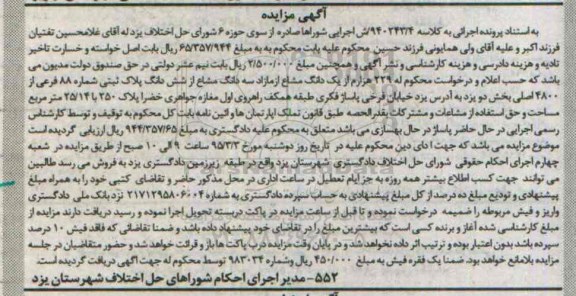 آگهی مزایده
به استناد پرونده اجرائی به کلاسه ۹۴۰۲۴۳/۴ش اجرایی شوراها صادره از سوی حوزه ۶ شورای حل اختلاف یزد له آقای غلامحسین تفتیان
فرزند اکبر و علیه آقای ولی همایونی فرزند حسین محکوم علیه بابت محکوم به به مبلغ ۶۵/۳۵۷/۹۴۴ ریال بابت اصل خواسته و خسارت تاخیر
تادیه و هزینه دادرسی و هزینه کارشناسی و نشر آگهی و همچنین مبلغ ۲/۵۰۰/۰۰۰ ریال بابت نیم عشر دولتی در حق صندوق دولت مدیون می
باشد که حسب اعلام و درخواست محکوم له ۲۲۹ هزارم از یک دانگ مشاع از مازاد سه دانگ مشاع از شش دانگ پلاک ثبتی شماره ۸۸ فرعی از
۴۸۰۰ اصلی بخش دو یزد به آدرس یزد خیابان فرخی پاساژ فکری طبقه همکف راهروی اول مغازه جواهری خضرا پلاک ۲۵۰ با ۲۵/۱۴ متر مربع
مساحت و حق استفاده از مشاعات و مشترکات بقدرالحصه طبق قانون تملک آپارتمان ها و آئین نامه بابت کل محکوم به توقیف و توسط کارشناس
رسمی اجرایی در حال حاضر پاساژ در حال بهسازی می باشد متعلق به محکوم علیه دادگستری به مبلغ ۹۴۴/۳۵۷/۶۵ ریال ارزیابی گردیده است
موضوع مزایده می باشد که جهت ادای دین محکوم علیه در تاریخ روز دوشنبه مورخ ۹۵/۳/۳ ساعت ۹ الی ۱۰ صبح از طریق مزایده در شعبه
چهارم اجرای احکام حقوقی شورای حل اختلاف دادگستری شهرستان یزد واقع در طبقه زیرزمین دادگستری یزد به فروش می رسد طالبین
می توانند جهت کسب اطلاع بیشتر همه روزه به جز ایام تعطیل در ساعت اداری در محل مذکور حاضر و تقاضای کتبی خود را به همراه مبلغ
پیشنهادی و تودیع مبلغ ده درصد از کل مبلغ پیشنهادی به حساب سپرده دادگستری به شماره ۲۱۷۱۲۹۵۸۰۶۰۰۴ نزد بانک ملی دادگستری
واریز و فیش مربوطه را ضمیمه درخواست نموده و تا قبل از ساعت مزایده در پاکت دربسته تحویل اجرا نموده و رسید دریافت دارند مزایده از
مبلغ کارشناسی شده آغاز و برنده کسی است که بیشترین مبلغ را در تقاضای خود پیشنهاد داده باشد و ضمنا تقاضائی که فاقد فیش ۱۰ درصد
سپرده باشد بدون اعتبار بوده و ترتیب اثر داده نخواهد شد و در پایان وقت مزایده درب پاکت ها باز و قرائت خواهد شد و حضور متقاضیان در جلسه
مزایده بلامانع خواهد بود. ضمنا یک فقره فیش به مبلغ ۴۵۰/۰۰۰ ریال وشماره ۹۸۳۰۳۴ توسط محکوم له جهت آگهی دریافت گردیده است
۵۵۲- مدیر اجرای احکام شوراهای حل اختلاف شهرستان یزد